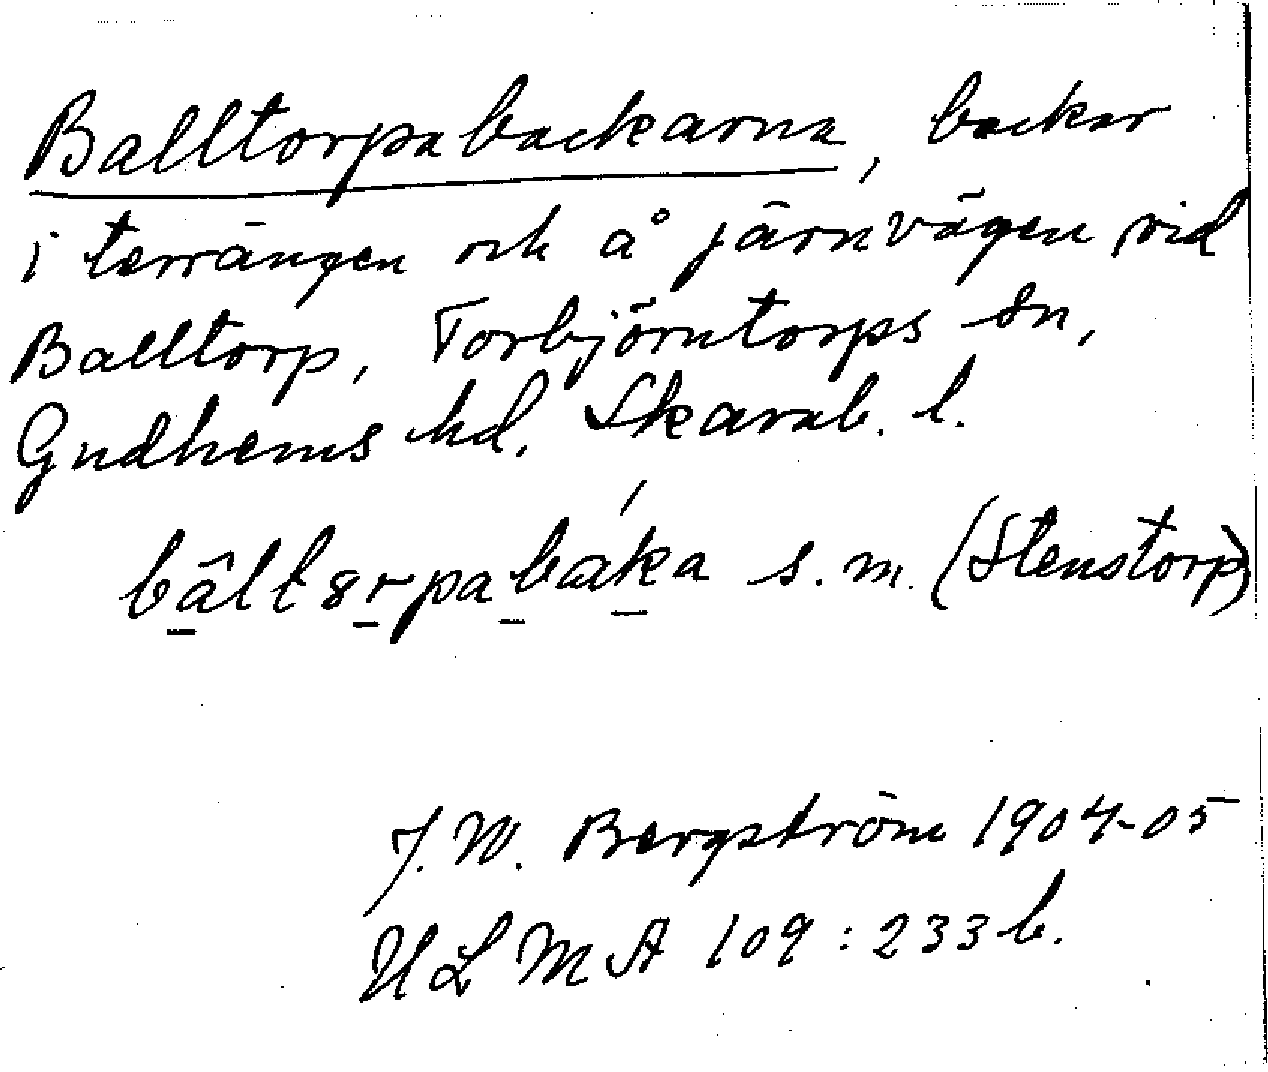 Balltorpabackarna, backar
i terrängen och å järnvägen vid
Balltorp, Torbjörntorps sn,
Gudhems hd, Skarab. l.
bâltȣrpabaka s. m. (Stenstorp)
J. W. Bergström 1904-05
ULMA 109:233 b.